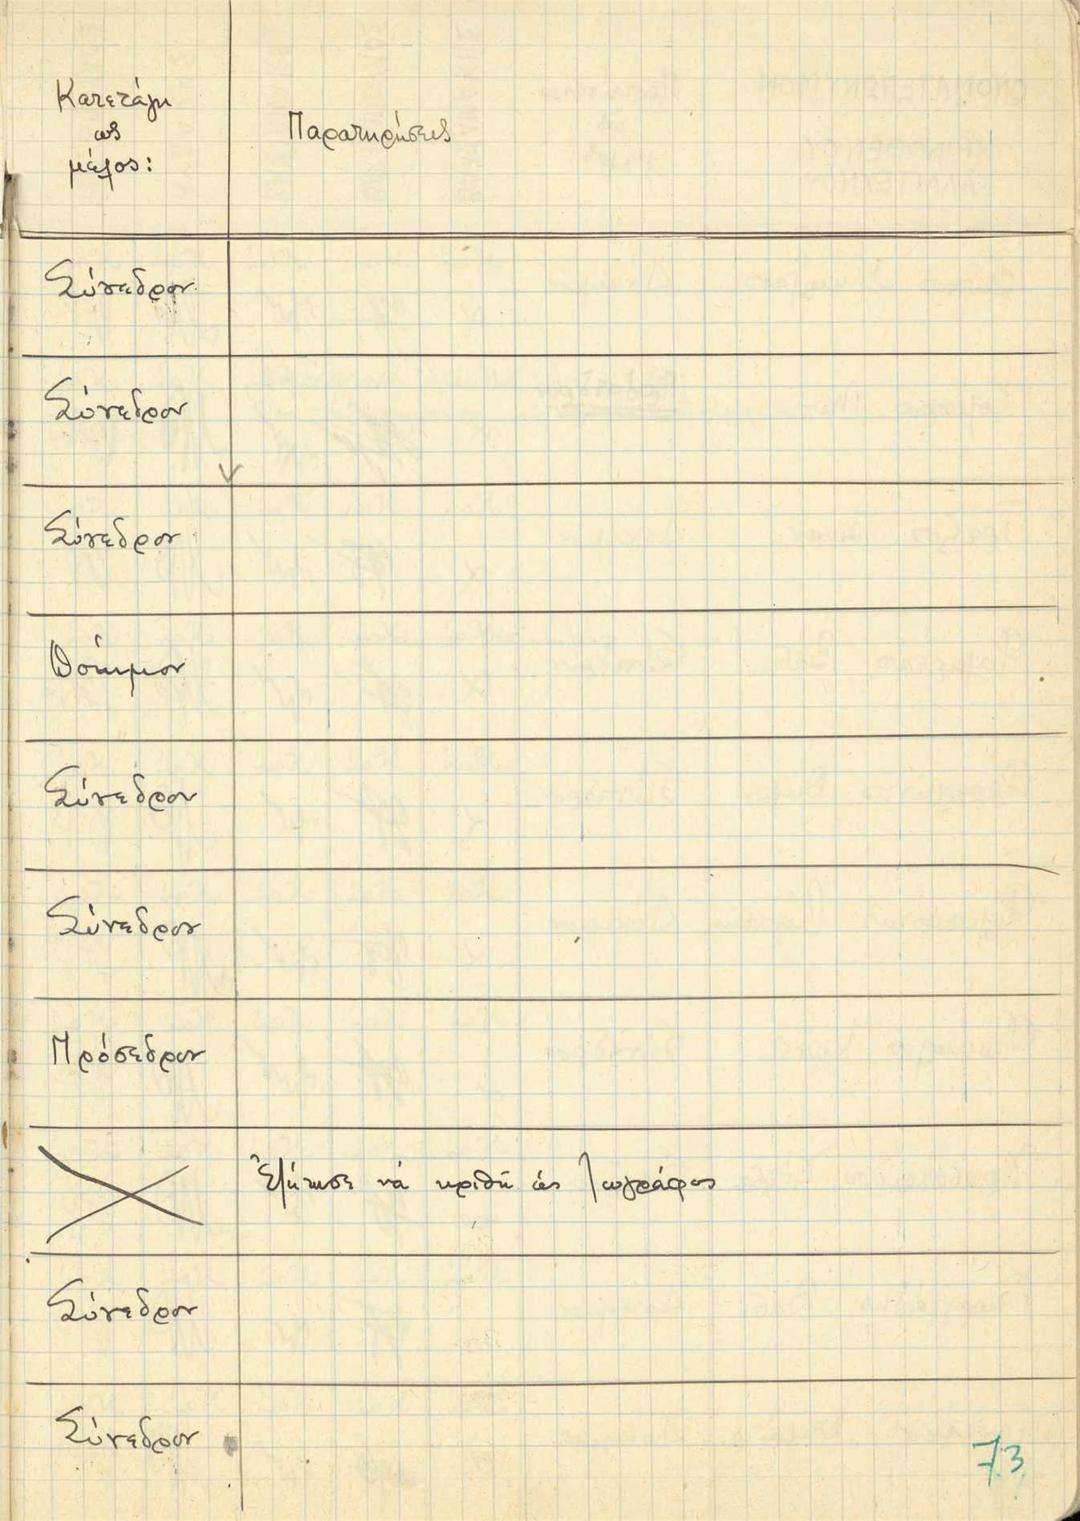 Κατετάγη
ως
μέλος:
Παρατηρήσεις
Σύνεδρον
Σύνεδρον
Σύνεδρον
Δόκιμον
Σύνεδρον
Σύνεδρον
Πρόσεδρον
Ἐζήτησε νά κριθῆ ὡς ζωγράφος
Σύνεδρον
Σύνεδρον
73